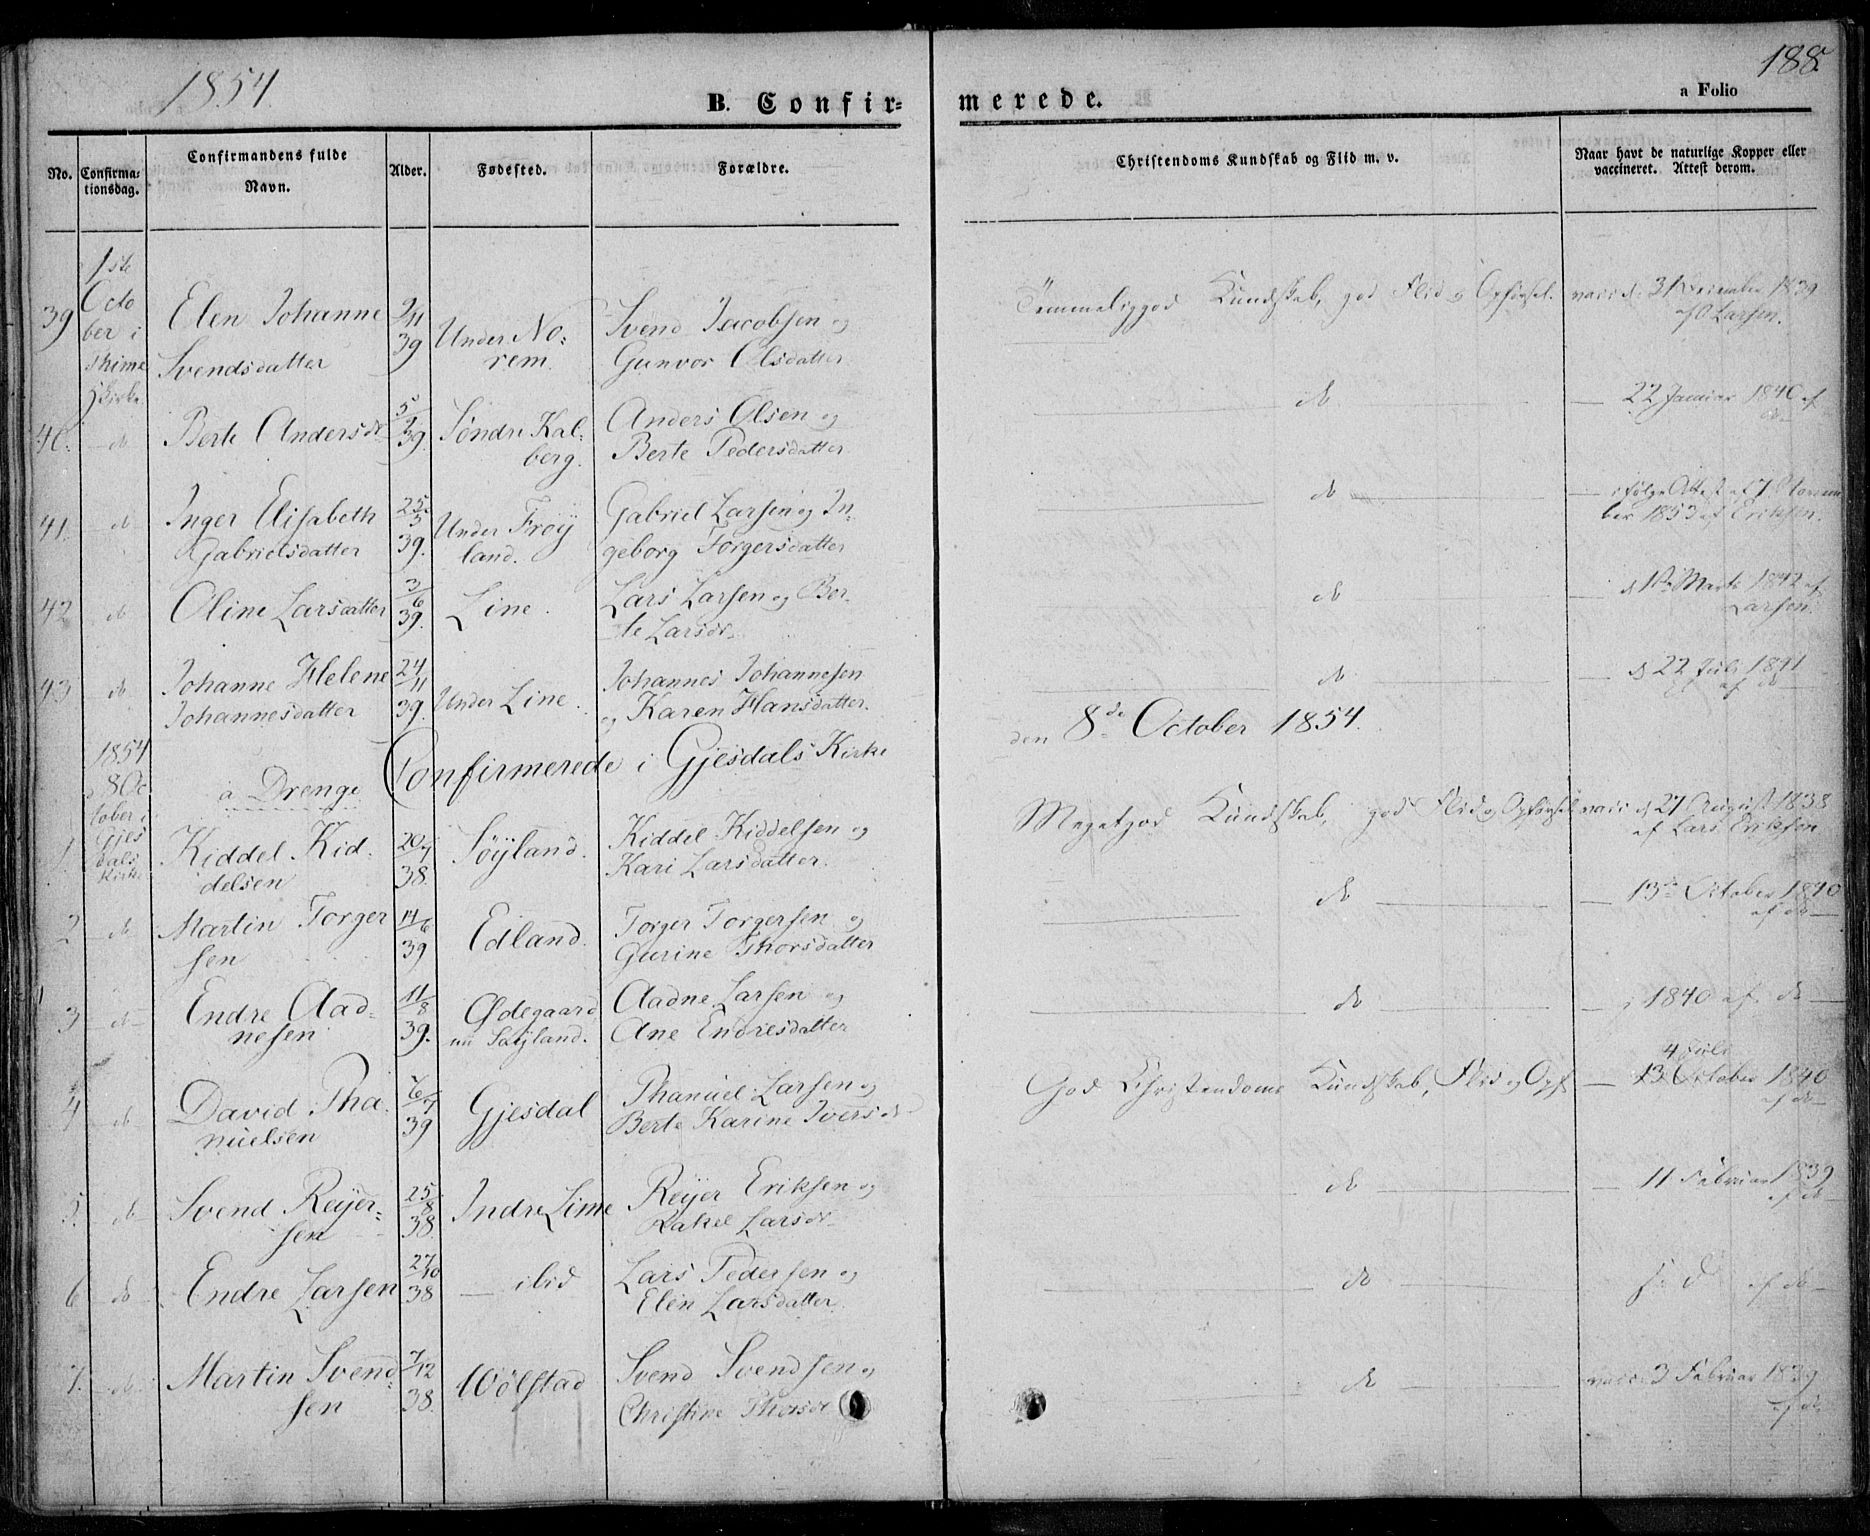 1854.
188.
B. Confir=
merede.
a Folio
No.
Confirma-
tionsdag.
Confirmandens fulde
Navn.
Alder.
Fødested.
Forældre.
Christendoms Kundskab og Flid m. v.
Naar havt de naturlige Kopper eller
vaccineret. Attest derom.
39
1ste
Octo
ber i
Thime
Kirke
Elen Johanne
Svendsdatter
2/11
39
Under No=
rem.
Svend Jacobsen og
Gunvor Olsdatter
Temmeliggod Kundskab, god Flid og Opførsel.
vacc. d. 31 December 1839
af O Larsen.
40.
do
Berte Andersdr
39.
Søndre Kal=
berg.
Anders Olsen og
Berte Pedersdatter
do
22 Januar 1840 af
do
41.
do
Inger Elisabeth
Gabrielsdatter
25/5
39.
Under Frøy
land.
Gabriel Larsen og In=
geborg Torgersdatter
do
ifølge Attest af 7 Novem
ber 1853 af Eriksen.
42
do
Oline Larsdatter
3/6
39.
Line.
Lars Larsen og Ber=
te Larsdr
do
Marts 1842 af
Larsen.
43
do
Johanne Helene
Johannesdatter
24/11
39.
Under Line.
Johannes Johannesen
og Karen Hansdatter.
do
d 22 Juli 1841
af do
1854
d 8 Oc
tober i
Gjes
dals
Kirke
a Drenge
Confirmerede i Gjesdals Kirke
den 8de October 1854.
1
Kiddel Kid=
delsen
20/7
38.
Søyland.
Kiddel Kiddelsen og
Kari Larsdatter.
Megetgod Kundskab, god Flid og Opførsel
vacc d 27 August 1838
af Lars Eriksen
2
do
Martin Torger
sen
14/6
39
Edland.
Torger Torgersen og
Gurine Thorsdatter
do
13de October 1840
af do
3
do
Endre Aad=
nesen
11/8
39.
Ødegaard
nu Søyland.
Aadne Larsen og
Ane Endresdatter
do
1840 af do
4
do
David Tha=
nuelsen
6/7
39
Gjesdal
Thanuel Larsen og
Berte Karine Iversdr
God Christendoms Kundskab, Flid og Opf.
4 Juli
13 October 1840
af do
5.
do
Svend Reyer=
sen
25/8
38.
Indre Lime
Reyer Eriksen og
Rakel Larsdr
do
11 Februar 1839
af do
6
do
Endre Larsen
27/10
38
ibid
Lars Pedersen og
Elen Larsdatter.
do
s. d af do
7.
do
Martin Svend=
sen
7/12
38.
Wølstad
Svend Svendsen og
Christine Thorsdr
do
vacc. 3 Februar 1839
af do